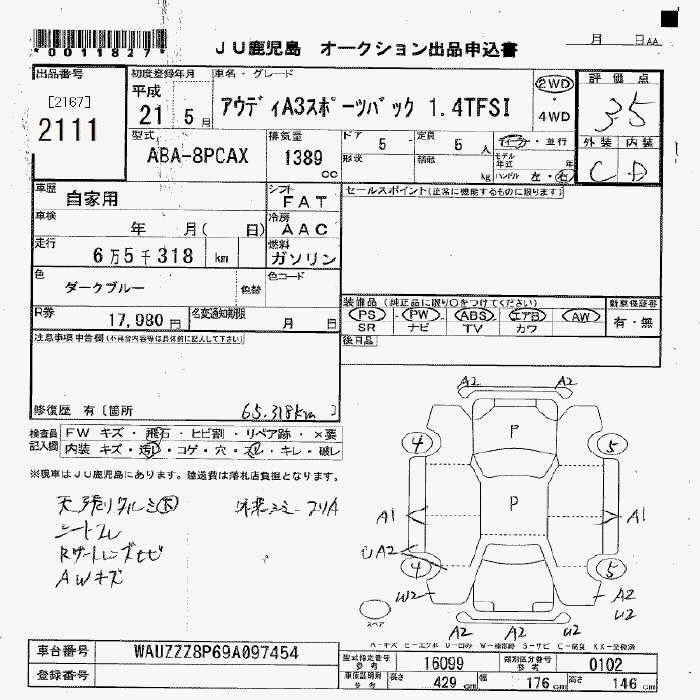 *0011827*
JU鹿児島 オークション出品申込書
月 日 AA
出品番号
[2167]
2111
初度登録年月
平成
21 5月
車名・グレード
アウディA3スポーツバック 1.4TFSI
2WD
・
4WD
評価点
3.5
外装 内装
C D
型式
ABA-8PCAX
排気量
1389
cc
ドア 5
形状
定員 5 人
積載 kg
ディーラー・並行
モデル年式 年
ハンドル 左・右
車歴
自家用
シフト
FAT
セールスポイント(正常に機能するものに限ります)
車検
年 月( 日)
冷房
AAC
走行
6万5千318 km
燃料
ガソリン
色
ダークブルー
色替
色コード
R券
17,980円
名変通知期限
月 日
装備品(純正品に限り○をつけてください)
PS・PW・ABS・エアB・AW
SR ナビ TV カワ
新車保証書
有・無
後日品
注意事項申告欄(不具合内容等は具体的に記入して下さい)
修復歴 有〔箇所
65.318km
検査員記入欄
FW キズ・飛石・ヒビ割・リペア跡・×要
内装 キズ・汚レ・コゲ・穴・スレ・キレ・破レ
※現車はJU鹿児島にあります。陸送費は落札店負担となります。
天張りタルミ大
シートスレ
AWキズ
A2 A2
4 P 5
P
A1 A1
UA2
4 5
W2 A2
U2
A2 A2 U2
スペア
A-キズ E-エクボ U-凹み W-補修跡 S-サビ C-腐食 XX-交換済
車台番号
WAUZZZ8P69A097454
登録番号
型式指定番号
参考
16099
類別区分番号
参考
0102
車検証明細
参考
長さ 429 cm 幅 176 cm 高さ 146 cm